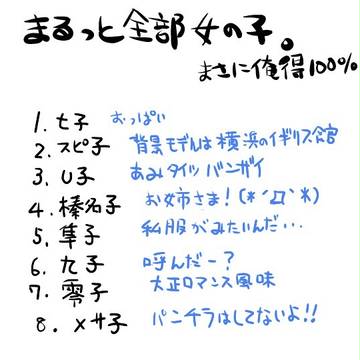 まるっと全部女の子。
まさに俺得100%
1. 七子 おっぱい
2. スピ子 背景モデルは横浜のイギリス館
3. U子 あみタイツバンザイ
4. 榛名子 お姉さま！(*´Д`*)
5. 隼子 私服がみたいんだ…
6. 九子 呼んだー？
7. 零子 大正ロマンス風味
8. メサ子 パンチラはしてないよ！！